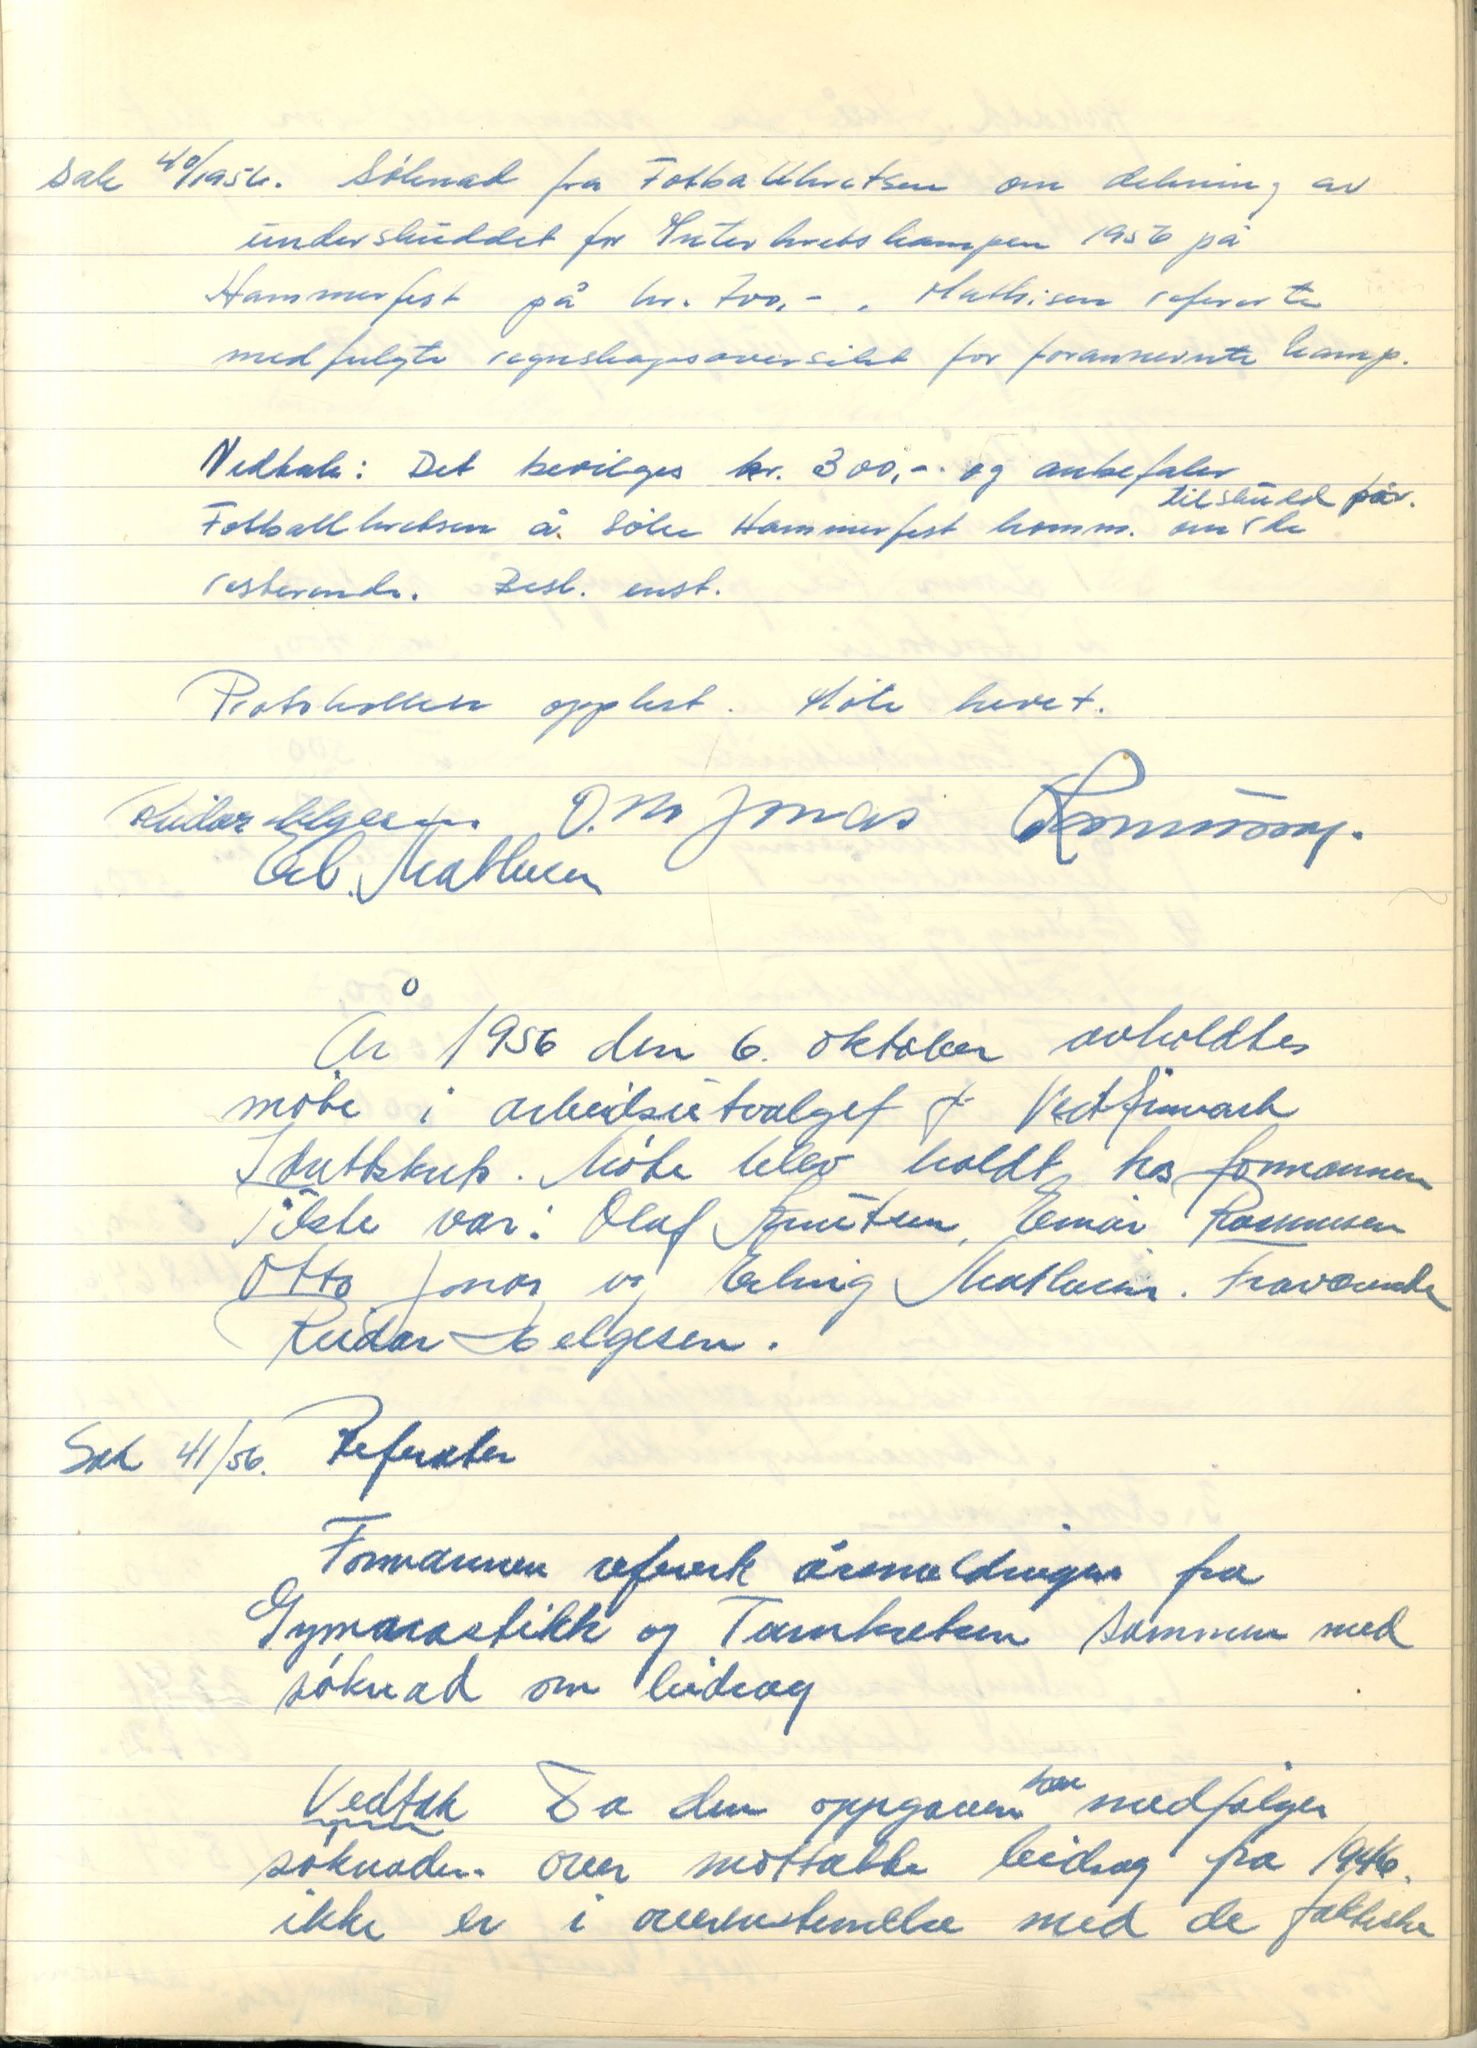 Sak 40/1956. Søknad fra Fotballkretsen om dekning av
underskuddet for Interkretskampen 1956 på
Hammerfest på kr. 700,-. Mathisen refererte
medfulgte regnskapsoversikt for forannevnte kamp.
Vedtak: Det bevilges kr. 300,-. og anbefaler
tilskudd för.
Fotballkretsen å søke Hammerfest komm. om de
resterende. Besl. enst.
Protokollen opplest. Møte hevet.
Reidar Helgesen O. M. Jonas
Erl. Mathisen
År 1956 den 6. oktober avholdtes
møte i arbeidsutvalget f Vestfinmark
Idrettskrets. Møte blev holdt hos formannen
Tilste var: Olaf Knutsen, Einar Rasmussen
Otto Jonas og Erling Mathisen. Fraværende
Reidar Helgesen.
Sak 41/56. Referater
Formannen refererte årsmeldingen fra
Gymnastikk og Turnkretsen sammen med
søknad om bidrag
Vedtak Da den oppgaven som medfølger
søknaden over mottatte bidrag fra 1946.
ikke er i overenstemelse med de faktiske